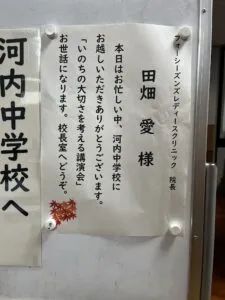 フォーシーズンズレディースクリニック 院長
田畑 愛 様
本日はお忙しい中、河内中学校に
お越しいただきありがとうございます。
「いのちの大切さを考える講演会」
お世話になります。校長室へどうぞ。
河内中学校へ